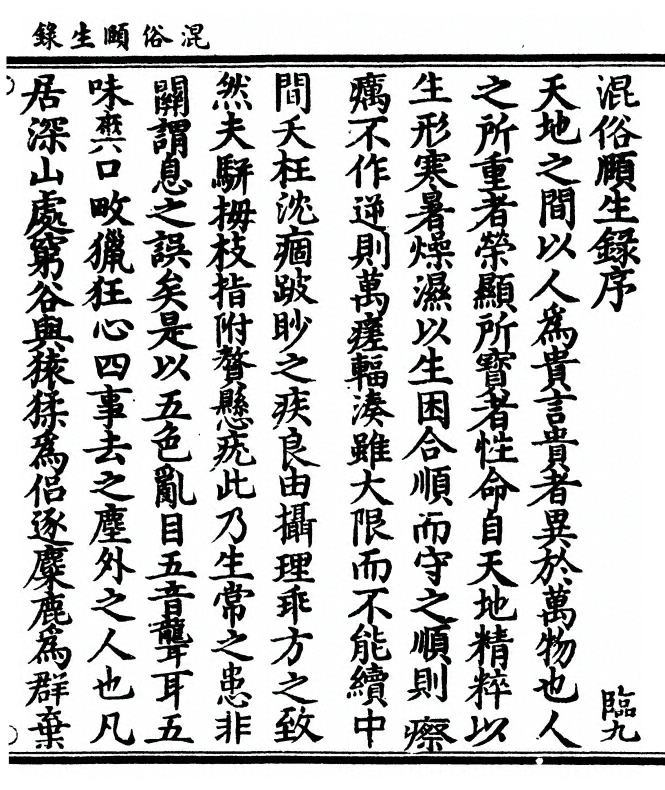 混俗頤生錄
混俗頤生錄序
臨九
天地之間以人爲貴言貴者異於萬物也人
之所重者榮顯所寶者性命自天地精粹以
生形寒暑燥濕以生困合順而守之順則瘵
癘不作逆則萬瘥輻湊雖大限而不能續中
間夭枉沈痼跛眇之疾良由攝理乖方之致
然夫駢拇枝指附贅懸疣此乃生常之患非
關謂息之誤矣是以五色亂目五音聾耳五
味爽口畋獵狂心四事去之塵外之人也凡
居深山處窮谷與猿猱爲侶逐麋鹿爲群棄